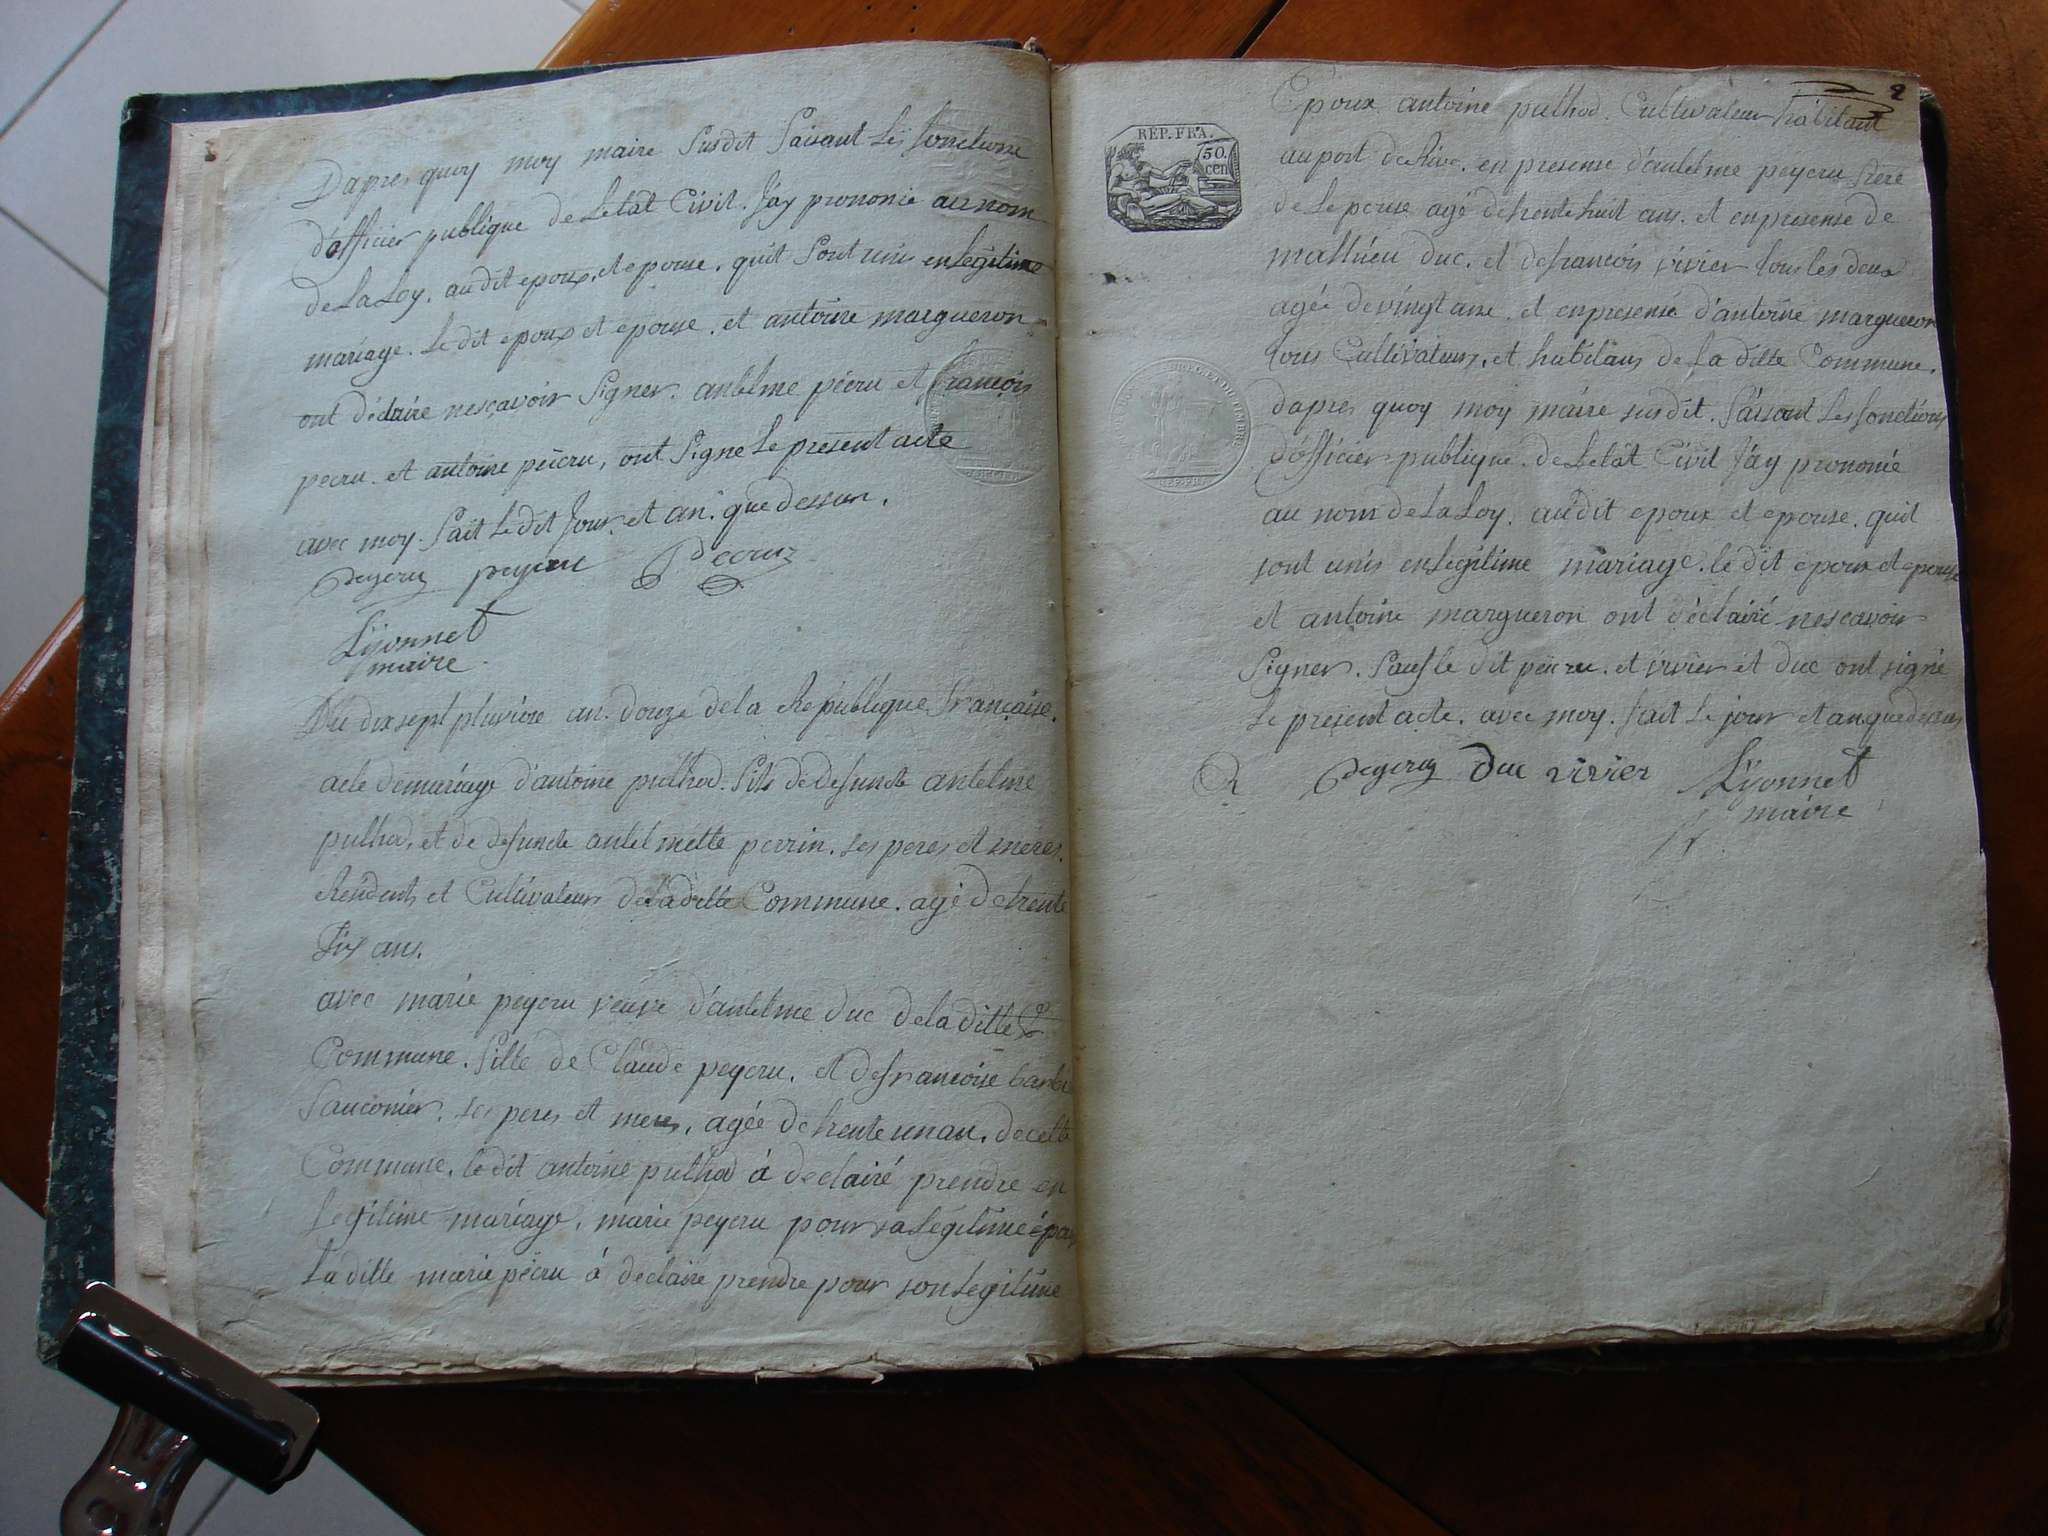 Dapres quoy moy maire Susdit Faisant Les fonctions
d'officier publique de Letat Civil. J'ay prononcé au nom
de La Loy, au dit epoux, et epouse, quil sont unis en Legitime
mariage. Le dit epoux et epouse, et antoine margueron
ont déclaire nesçavoir Signer. antelme pécru et françois
pecru et antoine peïcru, ont Signe Le present acte
avec moy. Fait Le dit Jour et an. que dessur.
Peycru peycru Pecruz
Lyonnet
maire
Du dix sept pluviose an. douze de la Republique Française.
acte de mariage d'antoine pulhod. Fils de defuncte antelme
pulhod, et de defuncte antelmette perrin. ses peres et meres.
Residents et Cultivateurs de la ditte Commune. agé de trente
Six ans.
avec marie peycru veuve d'antelme duc de la ditte
Commune. fille de Claude peycru. et de françoise
Sauconier. ses peres et meres, agée de trente un an. de cette
Commune. le dit antoine pulhod à declairé prendre en
Legitime mariage, marie peycru pour sa Legitime épouse
La ditte marie pëcru á declaire prendre pour son Legitime
2
REP. FRA.
50.
cen
Epoux antoine pulhod. Cultivateur habitant
au port de Rive. en presense d'antelme peycru frere
de Lepouse agé de trente huit ans. et en presense de
mathieu duc. et de françois vivier tous les deux
agée de vingt ans. et en presense d'antoine margueron
tous Cultivateurs. et habitans de La ditte Commune.
dapres quoy moy maire susdit. Faisant Les fonctions
d'officier publique de Letat Civil J'ay prononcé
au nom de La Loy. au dit epoux et epouse. quil
sont unis en Legitime mariage. le dit epoux et epouse
et antoine margueron ont déclairé nescavoir
Signer. Sauf le dit peïcru. et vivier et duc ont signé
Le present acte. avec moy. fait Le jour et an que dessus
Peycru duc vivier Lyonnet
maire